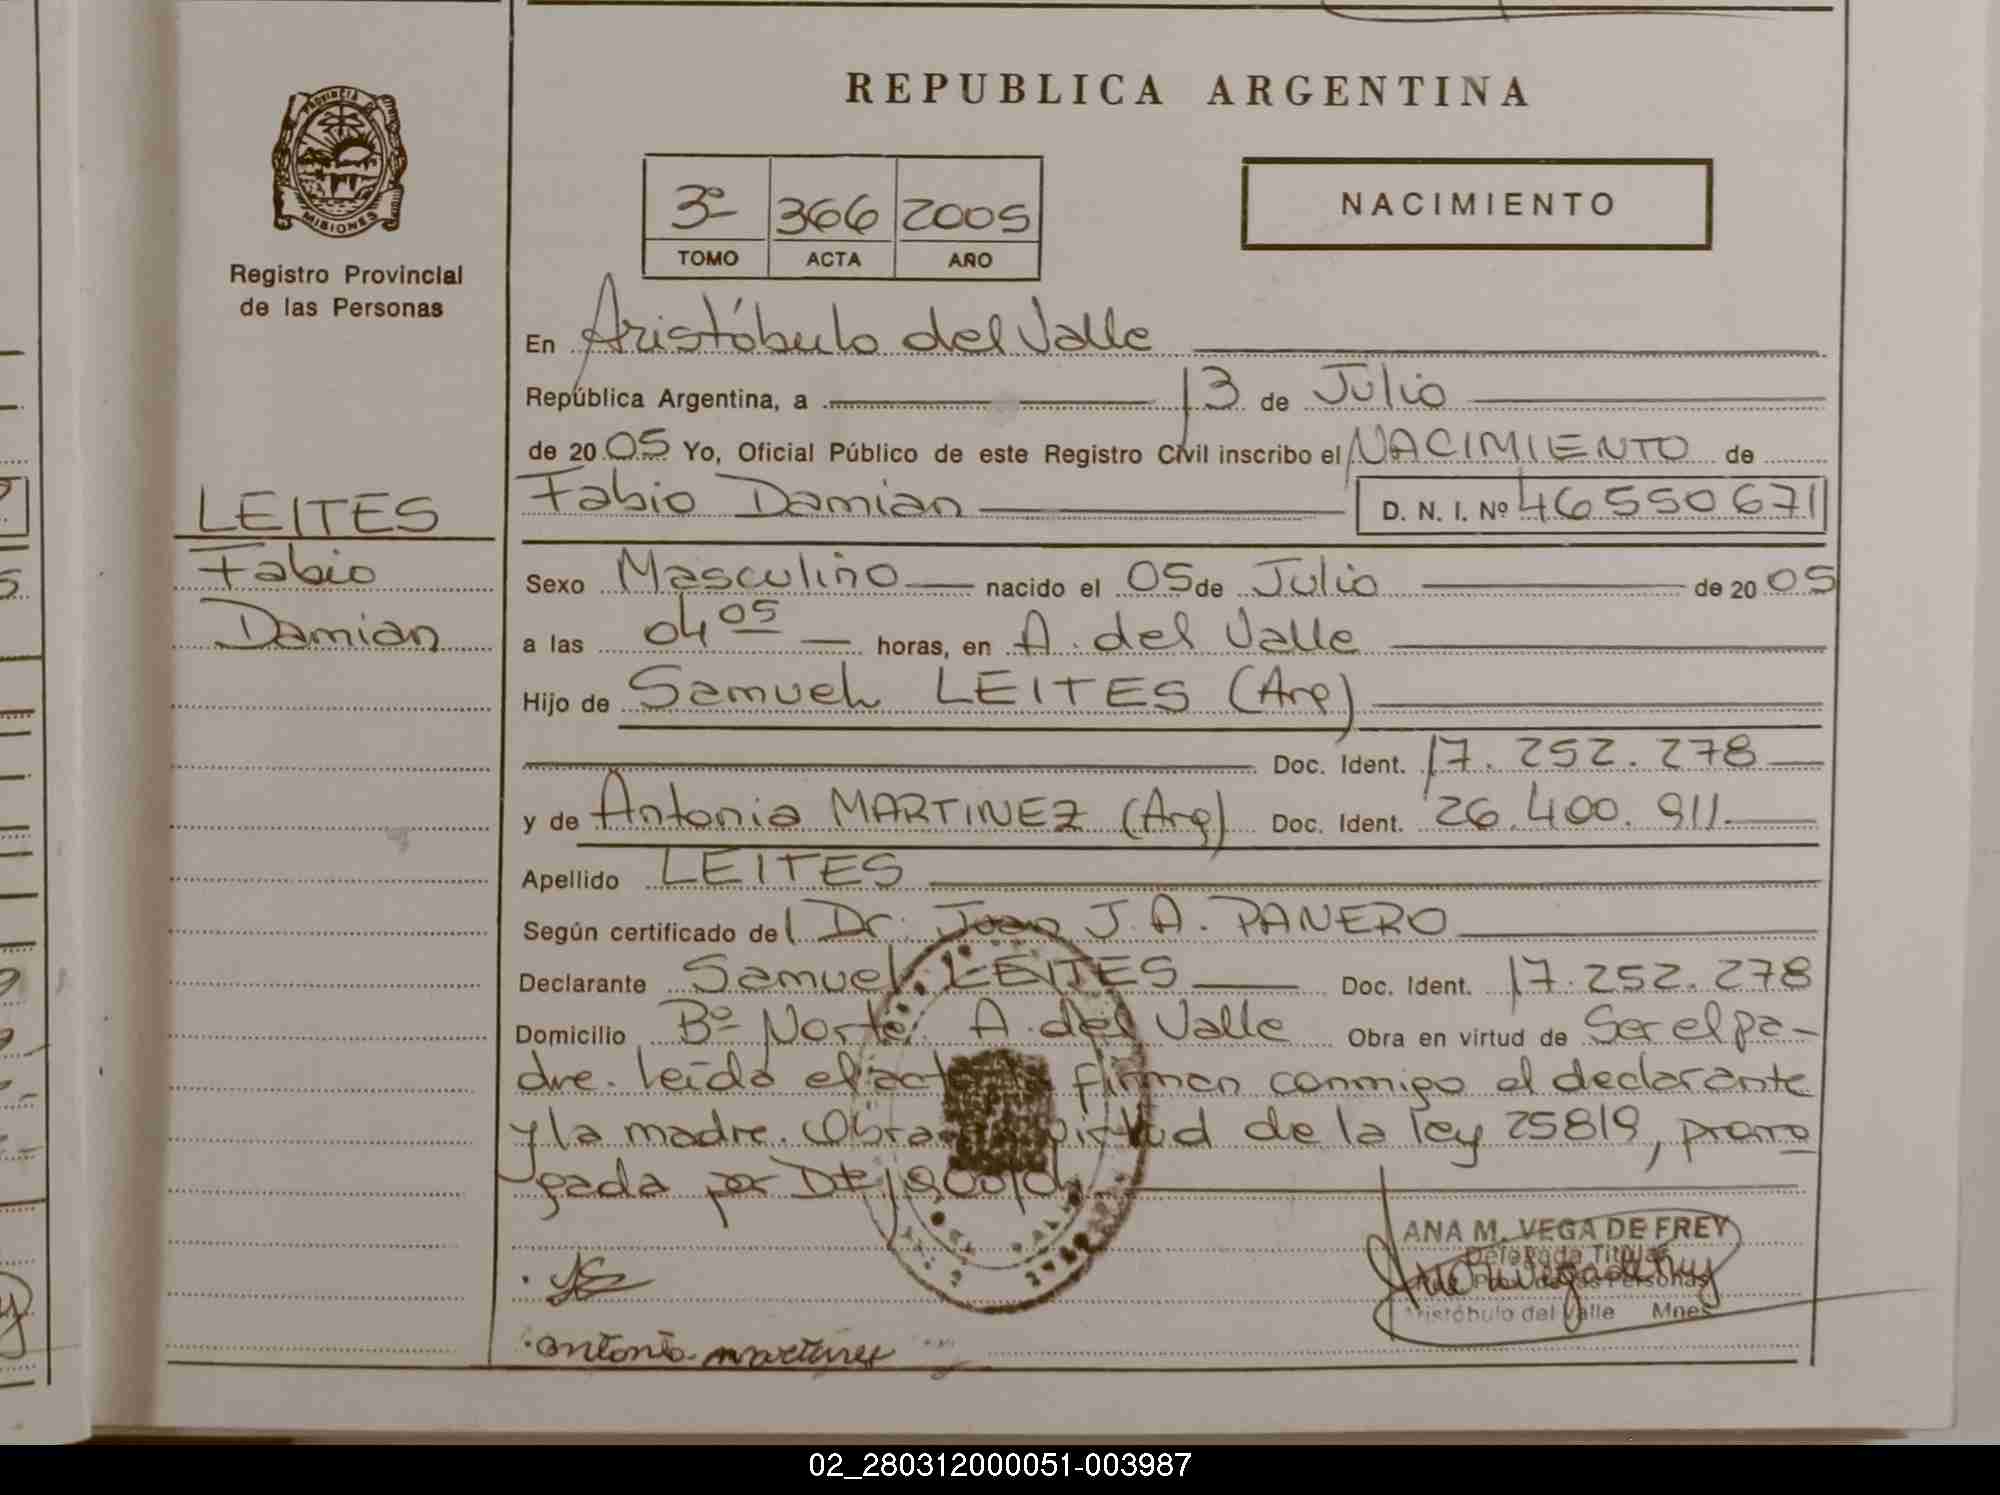 REPUBLICA ARGENTINA
PROVINCIA D
MISIONES
Registro Provincial
de las Personas
3º 366 2005
TOMO ACTA AÑO
NACIMIENTO
En Aristóbulo del Valle
República Argentina, a 13 de Julio
de 2005 Yo, Oficial Público de este Registro Civil inscribo el NACIMIENTO de
Fabio Damian D. N. I. Nº 46550671
LEITES
Fabio
Damian
Sexo Masculino nacido el 05 de Julio de 2005
a las 04 05 horas, en A. del Valle
Hijo de Samuel LEITES (Arg)
Doc. Ident. 17.252.278
y de Antonia MARTINEZ (Arg) Doc. Ident. 26.400.911
Apellido LEITES
Según certificado del Dr. Juan J. A. PANERO
Declarante Samuel LEITES Doc. Ident. 17.252.278
Domicilio Bº Norte. A. del Valle Obra en virtud de Ser el pa-
dre. leída el acta firman conmigo el declarante
y la madre. Obra virtud de la ley 25819, prorro
gada por
ANA M. VEGA DE FREY
Delegada Titular
Personas
Aristóbulo del Valle Mnes
antonia martinez
02_280312000051-003987